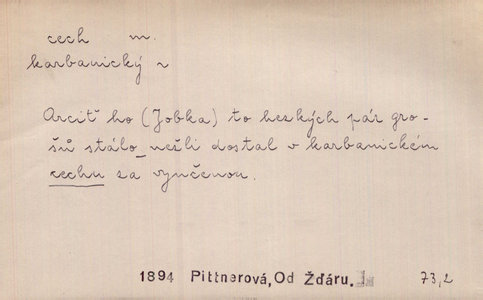 cech m.
karbanický ~
Arciť ho (Jobka) to hezkých pár gro-
šů stálo nežli dostal v karbanickém
cechu za vyučenou.
1894 Pittnerová, Od Žďáru. 73,2